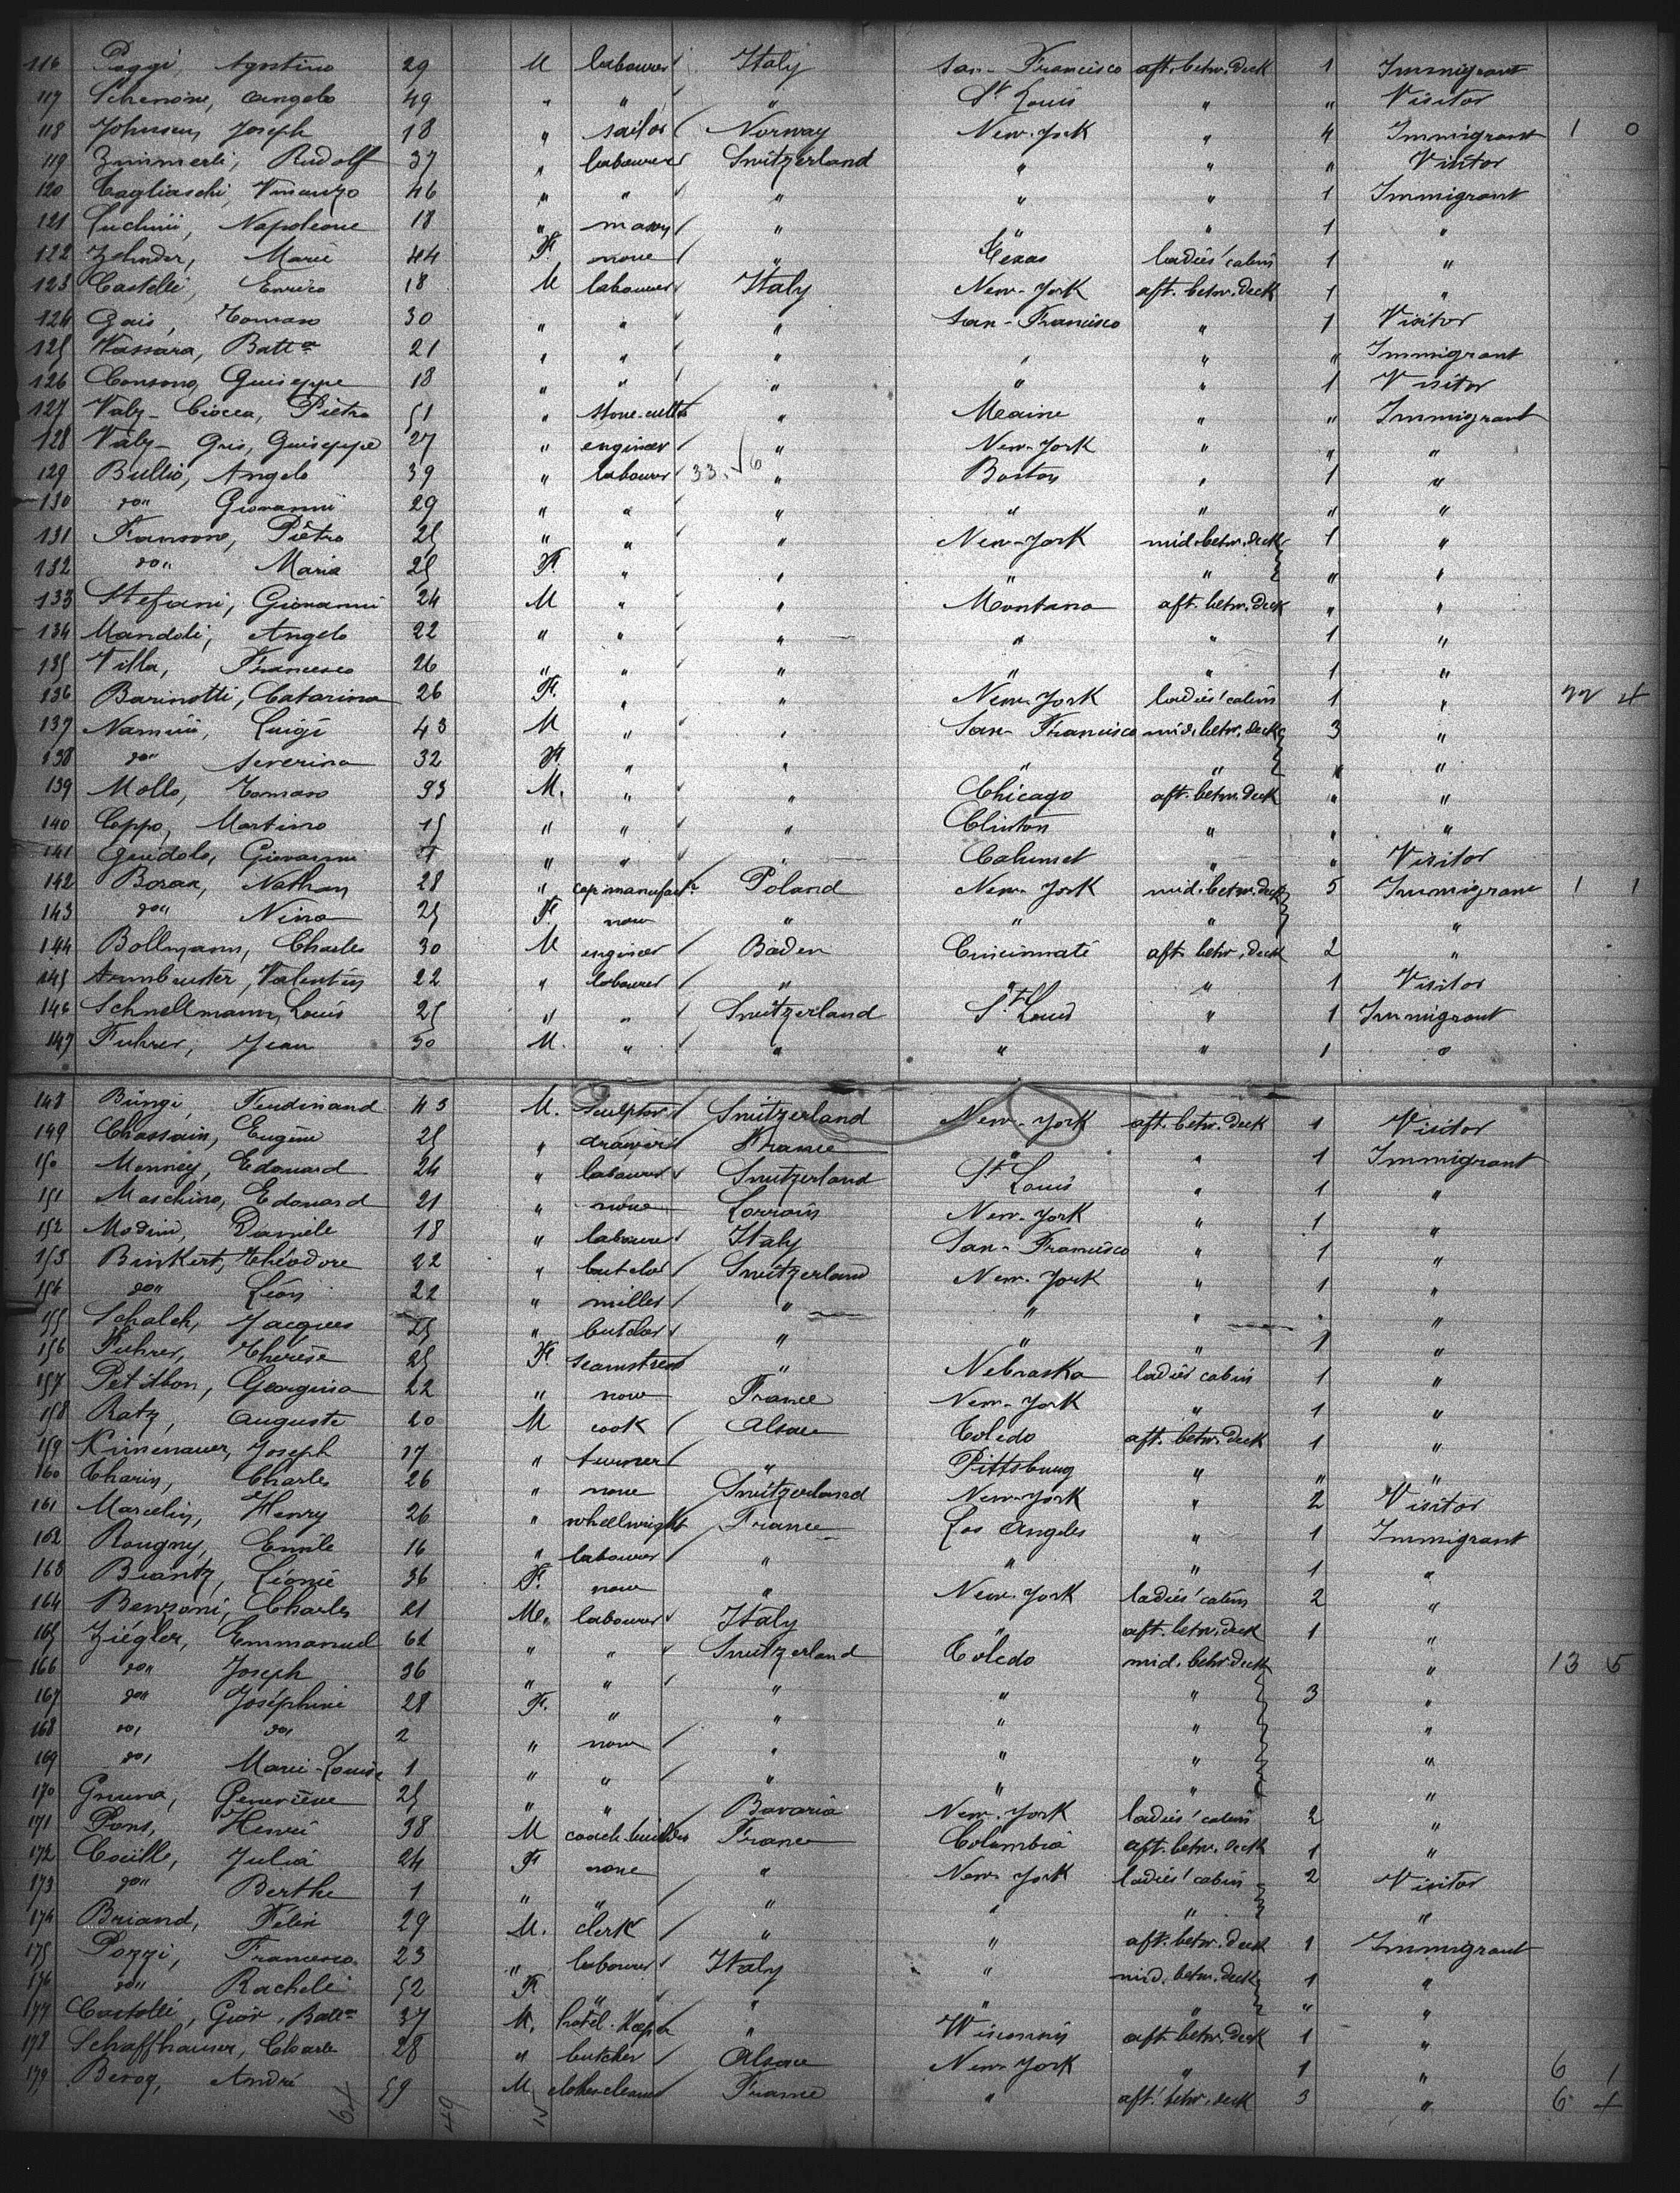 116 Poggi, Agostino 29 M labourer Italy San-Francisco aft. betw. deck 1 Immigrant
117 Schenone, Angelo 49 " " " St Louis " " Visitor
118 Johnsen, Joseph 18 " sailor Norway New-York " 4 Immigrant 1 0
119 Zimmerli, Rudolf 37 " labourer Switzerland " " " Visitor
120 Tagliaschi, Vincenzo 46 " " " " " 1 Immigrant
121 Luchini, Napoleone 18 " mason " " " 1 "
122 Zehnder, Marie 44 F. none " Texas ladies' cabin 1 "
123 Castelli, Enrico 18 M labourer Italy New-York aft. betw. deck 1 "
124 Gais, Tomaso 30 " " " San-Francisco " 1 Visitor
125 Vassara, Batta 21 " " " " " " Immigrant
126 Consono, Guiseppe 18 " " " " " 1 Visitor
127 Valz-Ciocca, Pietro 51 " stone-cutter " Maine " " Immigrant
128 Valz-Gris, Guiseppe 27 " engineer " New-York " " "
129 Bullio, Angelo 39 " labourer 33. 6 " Boston " 1 "
130 do" Giovanni 29 " " " " " " "
131 Fransone, Pietro 25 " " " New-York mid. betw. deck 1 "
132 do" Maria 25 F. " " " " " "
133 Stefani, Giovanni 24 M " " Montana aft. betw. deck " "
134 Mandoli, Angelo 22 " " " " " 1 "
135 Villa, Francesco 26 " " " " " 1 "
136 Barinotti, Catarina 26 F. " " New-York ladies' cabin 1 " 22 4
137 Namini, Luigi 43 M " " San-Francisco mid. betw. deck 3 "
138 do" Severina 32 F. " " " " " "
139 Mollo, Tomaso 33 M. " " Chicago aft. betw. deck " "
140 Ceppo, Martino 15 " " " Clinton " " "
141 Guidolo, Giovanni " " " Calumet " " Visitor
142 Borax, Nathan 28 " cap manufactr Poland New-York mid. betw. deck 5 Immigrant 1 1
143 do" Nina 25 F. none " " " "
144 Bollmann, Charles 30 M engineer Baden Cincinnati aft. betw. deck 2 "
145 Armbruster, Valentin 22 " labourer " " " 1 Visitor
146 Schnellmann, Louis 25 " " Switzerland St Louis " 1 Immigrant
147 Fuhrer, Jean 30 M. " " " " 1 "
148 Büngi, Ferdinand 43 M. sculptor Switzerland New-York aft. betw. deck 1 Visitor
149 Chassain, Eugène 25 " drawer France " " 1 Immigrant
150 Monney, Edouard 24 " labourer Switzerland St Louis " 1 "
151 Maschino, Edouard 21 " none Lorrain New-York " 1 "
152 Modini, Daniele 18 " labourer Italy San-Francisco " 1 "
153 Binkert, Théodore 22 " butcher Switzerland New-York " 1 "
154 do" Léon 22 " miller " " " " "
155 Schalch, Jacques 25 " butcher " " " 1 "
156 Fuhrer, Thérèse 25 F. seamstress " Nebraska ladies' cabin 1 "
157 Petitbon, Georgina 22 " none France New-York " 1 "
158 Ratz, Auguste 20 M cook Alsace Toledo aft. betw. deck 1 "
159 Kimenauer, Joseph 17 " turner " Pittsburg " " "
160 Tharin, Charles 26 " none Switzerland New-York " 2 Visitor
161 Marcelin, Henry 26 " wheelwright France Los Angeles " 1 Immigrant
162 Rougny, Emile 16 " labourer " " " 1 "
163 Biantz, Léonie 36 F. none " New-York ladies' cabin 2 "
164 Benzoni, Charles 21 M. labourer Italy " aft. betw. deck 1 "
165 Ziégler, Emmanuel 62 " " Switzerland Toledo mid. betw. deck " 13 5
166 do" Joseph 36 " " " " " 3 "
167 do" Joséphine 28 F. " " " " "
168 do" do" 2 " none " " " "
169 do" Marie-Louise 1 " " " " " "
170 Gruna, Geneviève 25 " " Bavaria New-York ladies' cabin 2 "
171 Pons, Henri 38 M coach-builder France Columbia aft. betw. deck 1 "
172 Couille, Julia 24 F none " New-York ladies' cabin 2 Visitor
173 do" Berthe 1 " " " " " "
174 Briand, Félix 29 M. clerk " " aft. betw. deck 1 Immigrant
175 Pozzi, Francesco 23 " labourer Italy " mid. betw. deck 1 "
176 do" Racheli 52 F. " " " " " "
177 Castelli, Giov. Batta 37 M. hotel-keeper " Wisconsin aft. betw. deck 1 "
178 Schaffhauser, Charles 28 " butcher Alsace New-York " 1 " 6 1
179 Beroq, André 59 M clothes cleaner France " aft. betw. deck 3 " 6 +